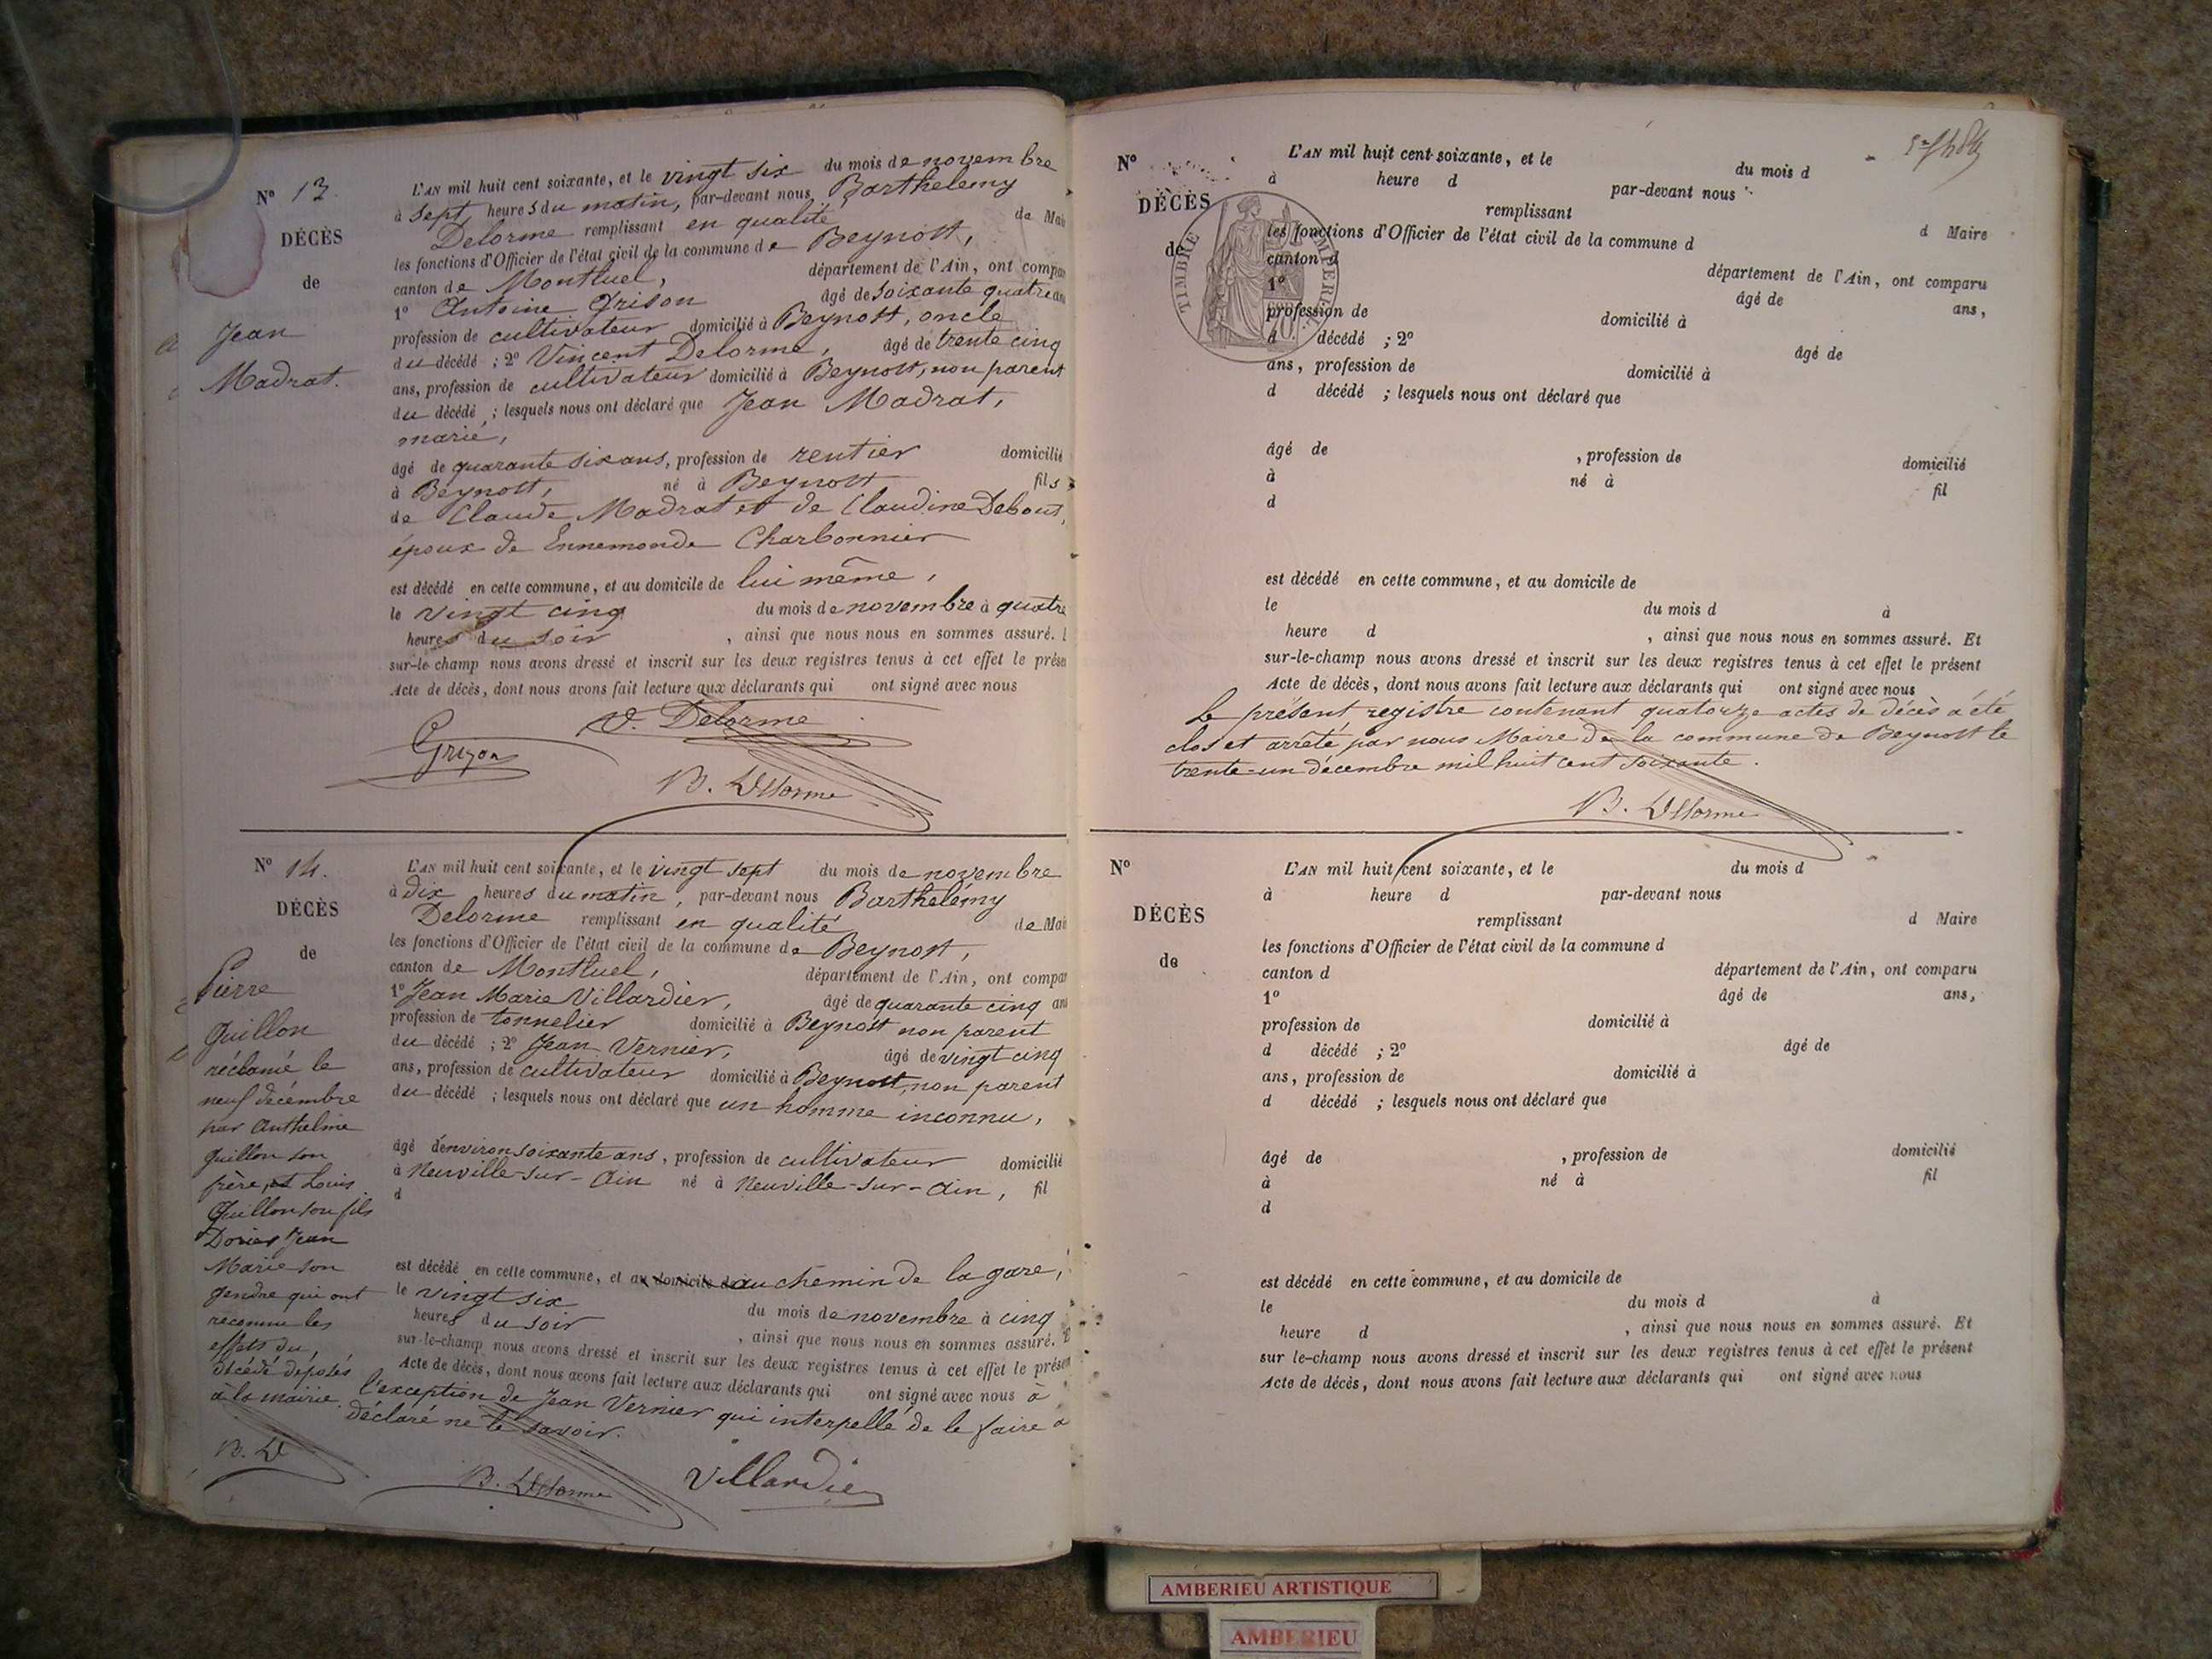 N° 13.
DÉCÈS
de
Jean
Madrat.
L'AN mil huit cent soixante, et le vingt six du mois de novembre
à sept heures du matin, par-devant nous Barthelemy
Delorme remplissant en qualité de Mai
les fonctions d'Officier de l'état civil de la commune de Beynost,
canton de Montluel, département de l'Ain, ont compa
1° Antoine Grison âgé de soixante quatre an
profession de cultivateur domicilié à Beynost, oncle
du décédé ; 2° Vincent Delorme, âgé de trente cinq
ans, profession de cultivateur domicilié à Beynost, non parent
du décédé ; lesquels nous ont déclaré que Jean Madrat,
marié,
âgé de quarante six ans, profession de rentier domicilié
à Beynost, né à Beynost fils
de Claude Madrat et de Claudine Debout,
époux de Ennemonde Charbonnier
est décédé en cette commune, et au domicile de lui même,
le vingt cinq du mois de novembre à quatre
heures du soir , ainsi que nous nous en sommes assuré.
sur-le-champ nous avons dressé et inscrit sur les deux registres tenus à cet effet le prése
Acte de décès, dont nous avons fait lecture aux déclarants qui ont signé avec nous
V. Delorme
Grizon
B. Delorme
N° 14.
DÉCÈS
de
Pierre
Guillon
réclamé le
neuf décembre
par Anthelme
Guillon son
frère, et Louis
Guillon son fils
Dorier Jean
Marie son
gendre qui ont
reconnu les
effets du
décédé déposés
à la mairie.
B. D
L'AN mil huit cent soixante, et le vingt sept du mois de novembre
à dix heures du matin, par-devant nous Barthelémy
Delorme remplissant en qualité de Mai
les fonctions d'Officier de l'état civil de la commune de Beynost,
canton de Montluel, département de l'Ain, ont compar
1° Jean Marie Villardier, âgé de quarante cinq ans
profession de tonnelier domicilié à Beynost non parent
du décédé ; 2° Jean Vernier, âgé de vingt cinq
ans, profession de cultivateur domicilié à Beynost, non parent
du décédé ; lesquels nous ont déclaré que un homme inconnu,
âgé d'environ soixante ans, profession de cultivateur domicilié
à Neuville-sur-Ain né à Neuville-sur-Ain, fil
d
est décédé en cette commune, et au domicile de au chemin de la gare,
le vingt six du mois de novembre à cinq
heures du soir , ainsi que nous nous en sommes assuré.
sur-le-champ nous avons dressé et inscrit sur les deux registres tenus à cet effet le prése
Acte de décès, dont nous avons fait lecture aux déclarants qui ont signé avec nous à
l'exception de Jean Vernier qui interpellé de le faire a
déclaré ne le savoir.
B. Delorme
Villardier
N°
DÉCÈS
de
TIMBRE IMPERIAL
L'AN mil huit cent soixante, et le du mois d
à heure d par-devant nous
remplissant d Maire
les fonctions d'Officier de l'état civil de la commune d
canton d département de l'Ain, ont comparu
1° âgé de ans,
profession de domicilié à
d décédé ; 2° âgé de
ans, profession de domicilié à
d décédé ; lesquels nous ont déclaré que
âgé de , profession de domicilié
à né à fil
d
est décédé en cette commune, et au domicile de
le du mois d à
heure d , ainsi que nous nous en sommes assuré. Et
sur-le-champ nous avons dressé et inscrit sur les deux registres tenus à cet effet le présent
Acte de décès, dont nous avons fait lecture aux déclarants qui ont signé avec nous
Le présent registre contenant quatorze actes de décès a été
clos et arrêté par nous Maire de la commune de Beynost le
trente-un décembre mil huit cent soixante.
B. Delorme
N°
DÉCÈS
de
L'AN mil huit cent soixante, et le du mois d
à heure d par-devant nous
remplissant d Maire
les fonctions d'Officier de l'état civil de la commune d
canton d département de l'Ain, ont comparu
1° âgé de ans,
profession de domicilié à
d décédé ; 2° âgé de
ans, profession de domicilié à
d décédé ; lesquels nous ont déclaré que
âgé de , profession de domicilié
à né à fil
d
est décédé en cette commune, et au domicile de
le du mois d à
heure d , ainsi que nous nous en sommes assuré. Et
sur le-champ nous avons dressé et inscrit sur les deux registres tenus à cet effet le présent
Acte de décès, dont nous avons fait lecture aux déclarants qui ont signé avec nous
AMBERIEU ARTISTIQUE
AMBERIEU